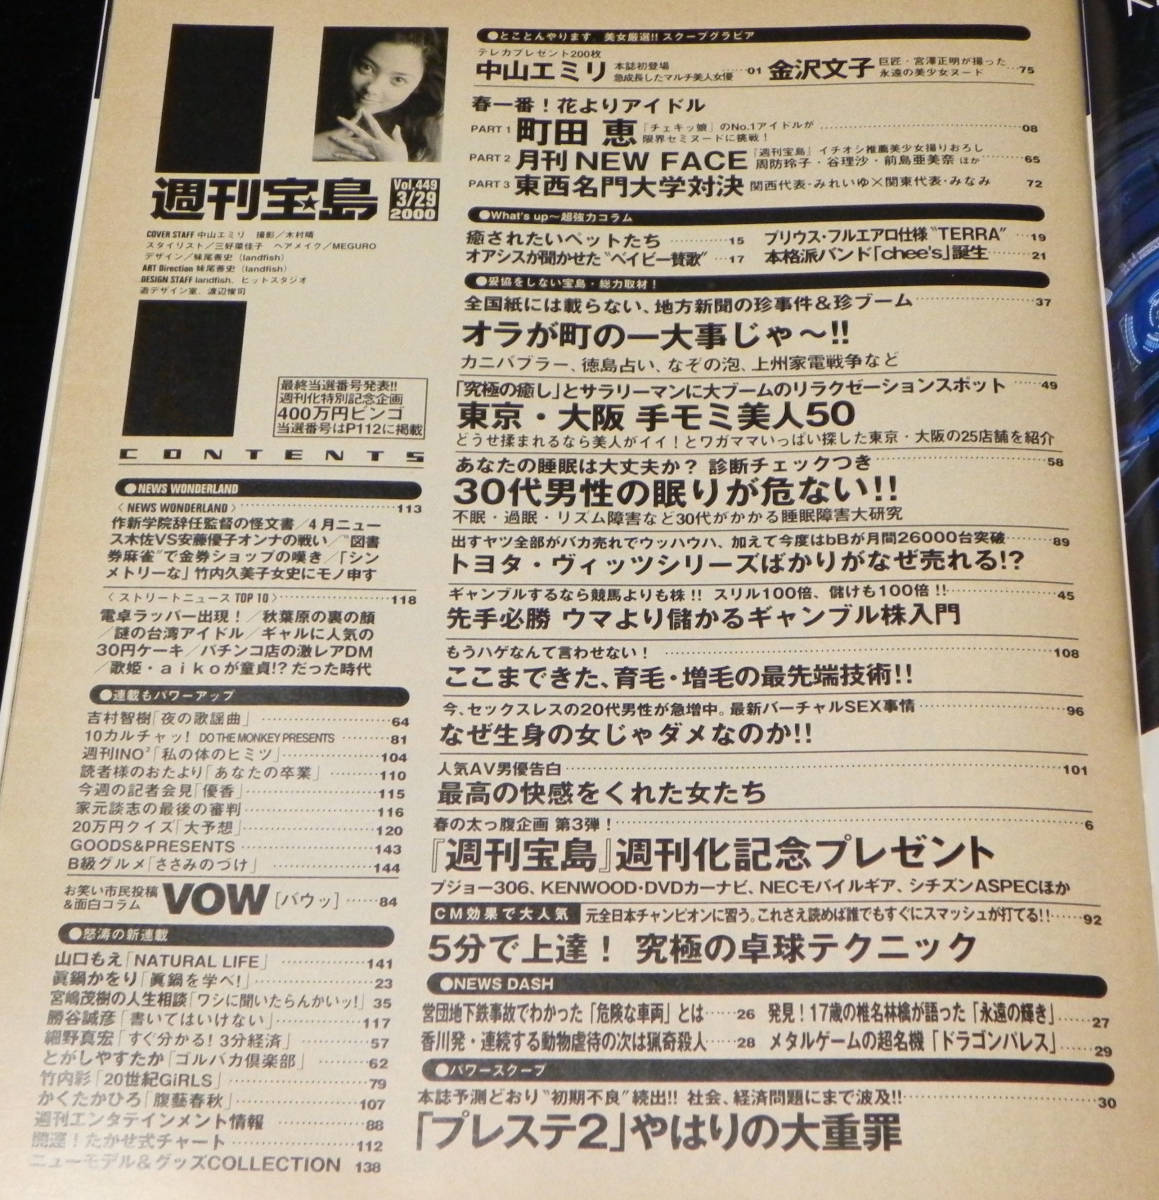 週刊宝島
Vol.449
3/29
2000
COVER STAFF 中山エミリ 撮影／木村晴
スタイリスト／三好菜佳子 ヘアメイク／MEGURO
デザイン／妹尾善史（landfish）
ART Direction 妹尾善史（landfish）
DESIGN STAFF landfish、ヒットスタジオ
遊デザイン室、渡辺惟司
最終当選番号発表!!
週刊化特別記念企画
400万円ビンゴ
当選番号はP112に掲載
CONTENTS
●NEWS WONDERLAND
〈NEWS WONDERLAND〉 113
作新学院辞任監督の怪文書／4月ニュー
ス木佐VS安藤優子オンナの戦い／“図書
券麻雀”で金券ショップの嘆き／「シン
メトリーな」竹内久美子女史にモノ申す
〈ストリートニュース TOP 10〉 118
電卓ラッパー出現！／秋葉原の裏の顔
／謎の台湾アイドル／ギャルに人気の
30円ケーキ／パチンコ店の激レアDM
／歌姫・aikoが童貞!?だった時代
●連載もパワーアップ
吉村智樹「夜の歌謡曲」 64
10カルチャッ！ DO THE MONKEY PRESENTS 81
週刊INO²「私の体のヒミツ」 104
読者様のおたより「あなたの卒業」 110
今週の記者会見「優香」 115
家元談志の最後の審判 116
20万円クイズ「大予想」 120
GOODS&PRESENTS 143
B級グルメ「ささみのづけ」 144
お笑い市民投稿
&面白コラム VOW［バウッ］ 84
●怒涛の新連載
山口もえ「NATURAL LIFE」 141
眞鍋かをり「眞鍋を学べ！」 23
宮嶋茂樹の人生相談「ワシに聞いたらんかいッ！」 35
勝谷誠彦「書いてはいけない」 117
細野真宏「すぐ分かる！3分経済」 57
とがしやすたか「ゴルバカ倶楽部」 62
竹内彩「20世紀GiRLS」 79
かくたかひろ「腹藝春秋」 107
週刊エンタテインメント情報 88
開運！たかせ式チャート 112
ニューモデル＆グッズCOLLECTION 138
●とことんやります 美女厳選!! スクープグラビア
テレカプレゼント200枚
中山エミリ 本誌初登場
急成長したマルチ美人女優 01
金沢文子 巨匠・宮澤正明が撮った
永遠の美少女ヌード 75
春一番！花よりアイドル
PART 1 町田 恵 「チェキッ娘」のNo.1アイドルが
限界セミヌードに挑戦！ 08
PART 2 月刊 NEW FACE 『週刊宝島』イチオシ推薦美少女撮りおろし
周防玲子・谷理沙・前島亜美奈 ほか 65
PART 3 東西名門大学対決 関西代表・みれいゆ×関東代表・みなみ 72
●What's up〜超強力コラム
癒されたいペットたち 15
プリウス・フルエアロ仕様“TERRA” 19
オアシスが聞かせた“ベイビー賛歌” 17
本格派バンド「chee's」誕生 21
●妥協をしない宝島・総力取材！
全国紙には載らない、地方新聞の珍事件＆珍ブーム 37
オラが町の一大事じゃ〜!!
カニバブラー、徳島占い、なぞの泡、上州家電戦争など
「究極の癒し」とサラリーマンに大ブームのリラクゼーションスポット 49
東京・大阪 手モミ美人50
どうせ揉まれるなら美人がイイ！とワガママいっぱい探した東京・大阪の25店舗を紹介
あなたの睡眠は大丈夫か？ 診断チェックつき 58
30代男性の眠りが危ない!!
不眠・過眠・リズム障害など30代がかかる睡眠障害大研究
出すヤツ全部がバカ売れでウッハウハ、加えて今度はbBが月間26000台突破 89
トヨタ・ヴィッツシリーズばかりがなぜ売れる!?
ギャンブルするなら競馬よりも株!! スリル100倍、儲けも100倍!! 45
先手必勝 ウマより儲かるギャンブル株入門
もうハゲなんて言わせない！ 108
ここまできた、育毛・増毛の最先端技術!!
今、セックスレスの20代男性が急増中。最新バーチャルSEX事情 96
なぜ生身の女じゃダメなのか!!
人気AV男優告白 101
最高の快感をくれた女たち
春の太っ腹企画 第3弾！ 6
『週刊宝島』週刊化記念プレゼント
プジョー306、KENWOOD・DVDカーナビ、NECモバイルギア、シチズンASPECほか
CM効果で大人気 元全日本チャンピオンに習う。これさえ読めば誰でもすぐにスマッシュが打てる!! 92
5分で上達！ 究極の卓球テクニック
●NEWS DASH
営団地下鉄事故でわかった「危険な車両」とは 26
発見！17歳の椎名林檎が語った「永遠の輝き」 27
香川発・連続する動物虐待の次は猟奇殺人 28
メタルゲームの超名機「ドラゴンパレス」 29
●パワースクープ
本誌予測どおり“初期不良”続出!! 社会、経済問題にまで波及!! 30
「プレステ2」やはりの大重罪